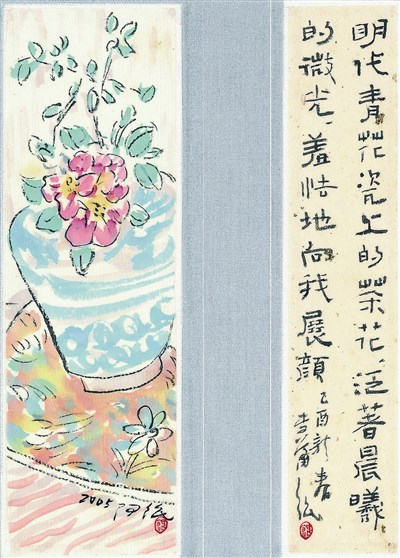 明代青花瓷上的茶花、泛著晨曦
的微光、羞怯地向我展顏
乙酉新春
2005